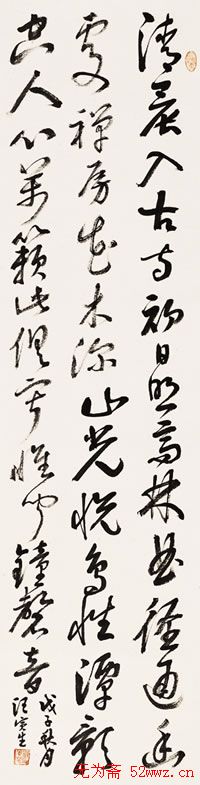 清晨入古寺初日照高林曲徑通幽
處禪房花木深山光悦鳥性潭影
空人心萬籟此俱寂惟聞鐘磬音
戊子秋月
无为斋 52wwz.cn